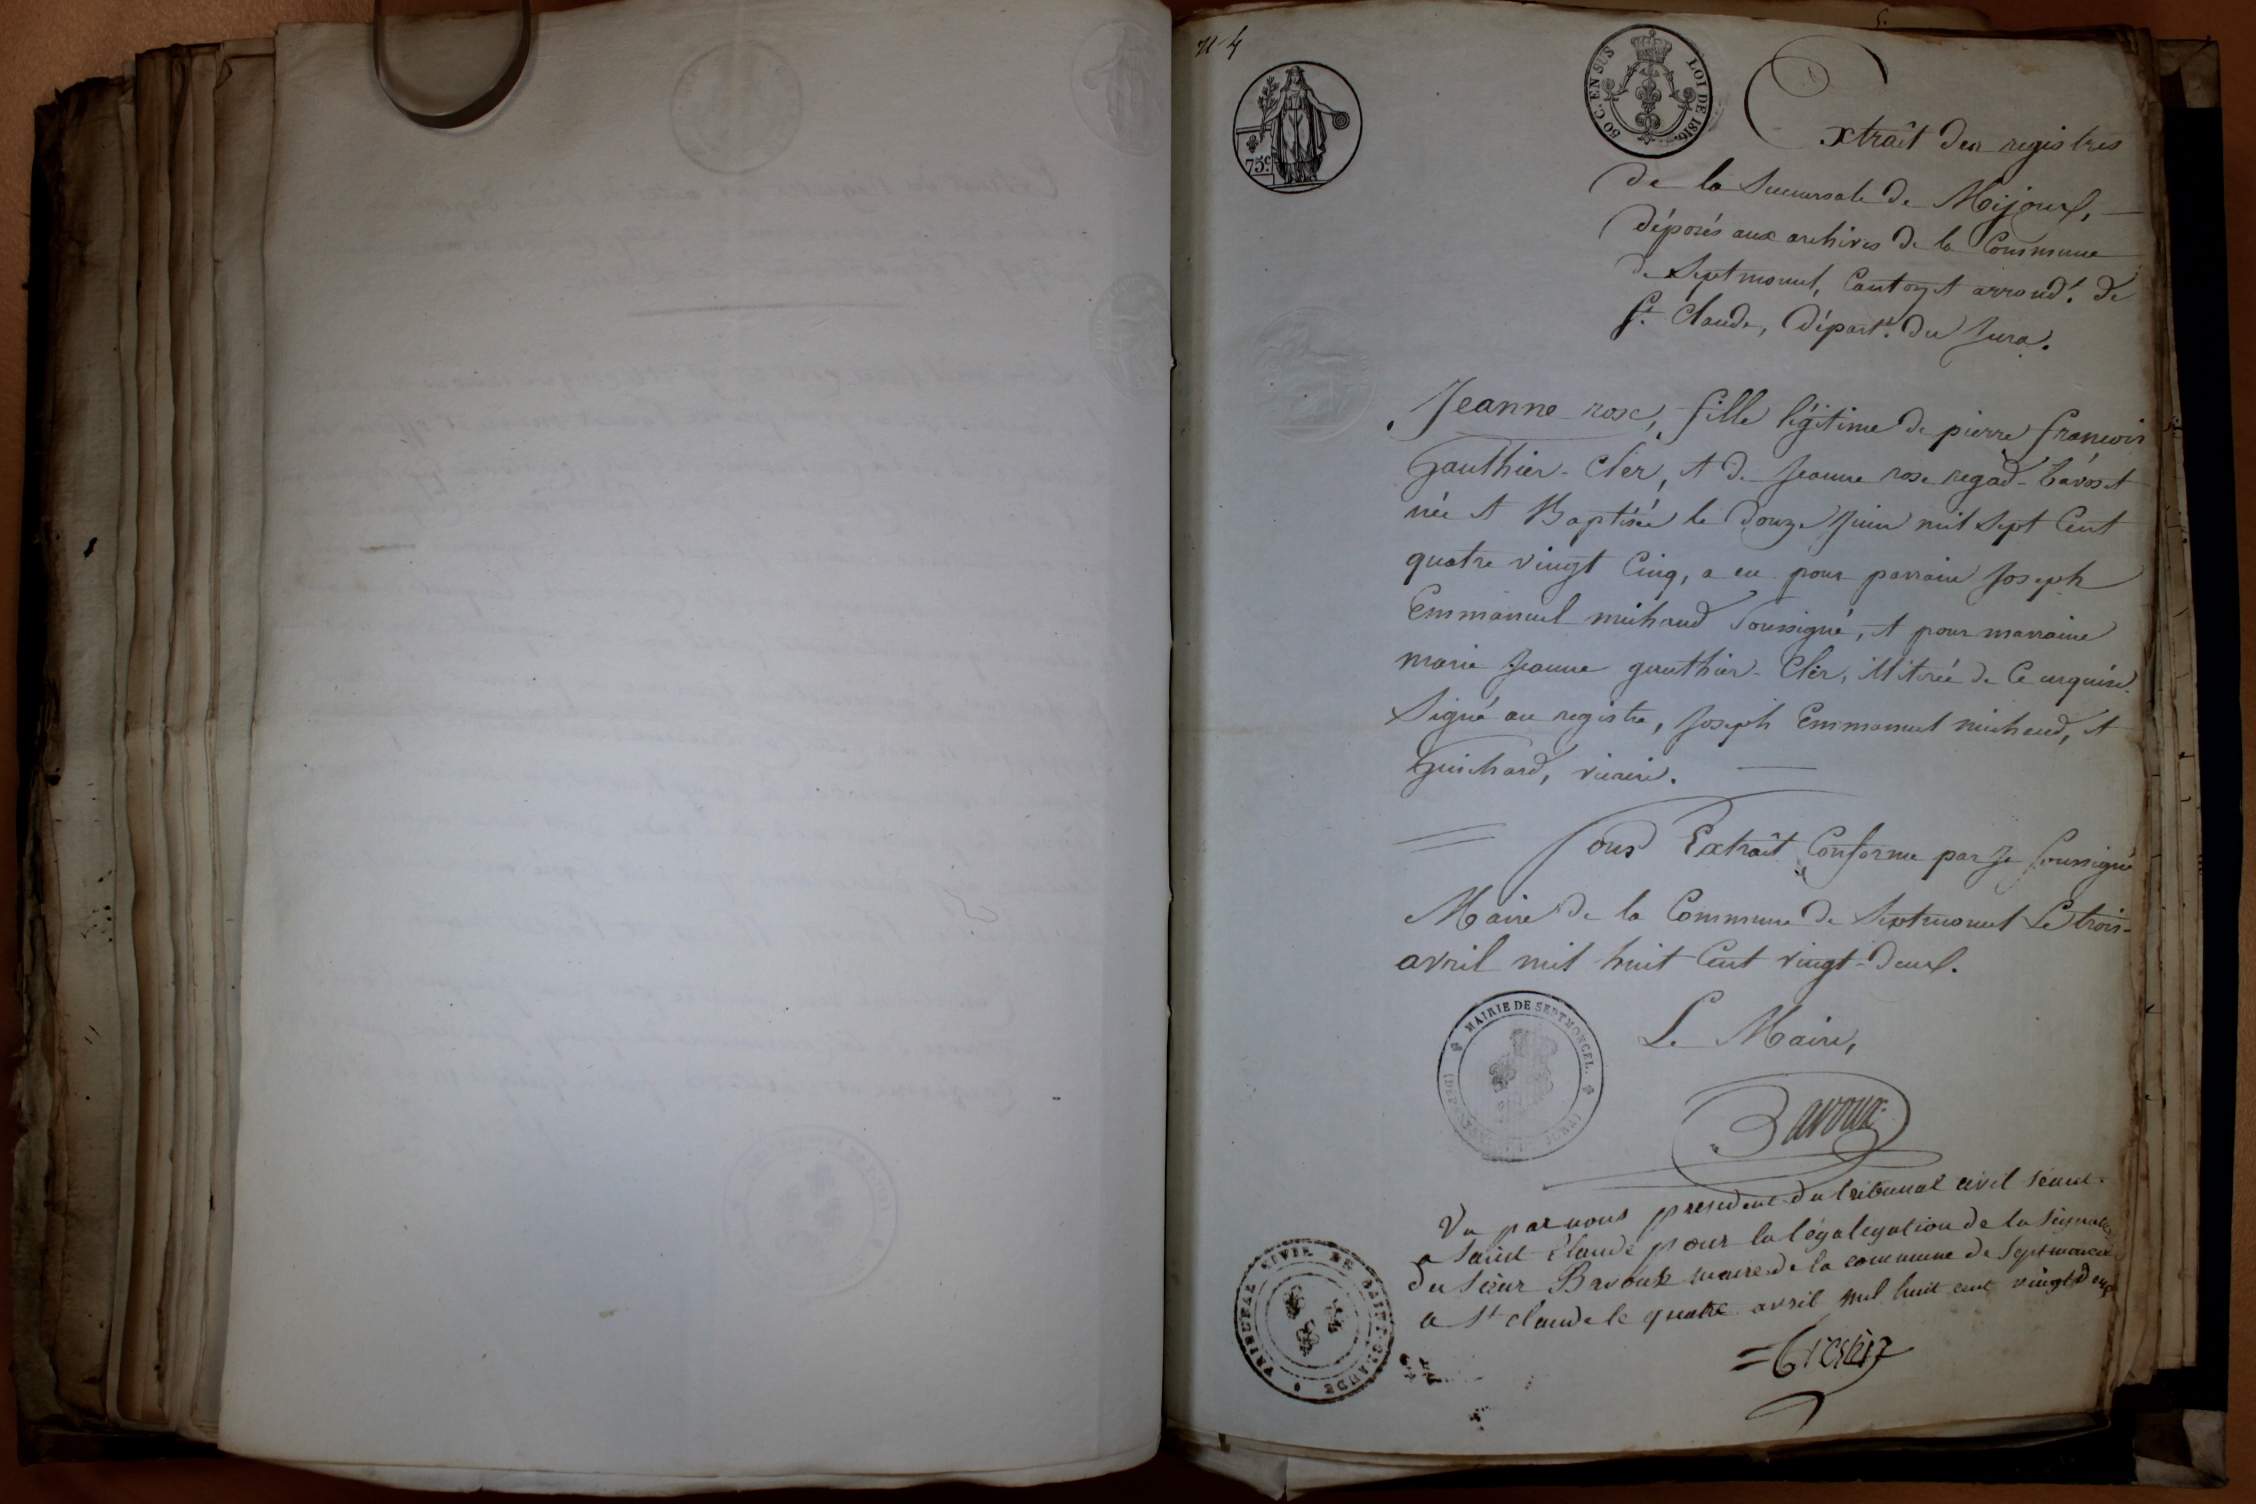 n° 4
75 c.
50 C. EN SUS LOI DE 1816.
Extrait des registres
de la Succursale de Mijoux,
déposés aux archives de la Commune
de Septmoncel, Canton et arrond.t de
St. Claude, Départ.t du Jura.
Jeanne rose, fille légitime de pierre françois
Gauthier-Cler, et de Jeanne rose regad-
née et Baptisée le Douze Juin mil Sept Cent
quatre vingt Cinq, a eu pour parrain Joseph
Emmanuel michaud Soussigné, et pour marraine
marie Jeanne gauthier-Cler, illitérée de ce enquise.
Signé au registre, Joseph Emmanuel michaud, et
Guichard, vicaire.
Pour Extrait Conforme par Je Soussigné
Maire de la Commune de Septmoncel Le trois
avril mil huit Cent vingt-deux.
MAIRIE DE SEPTMONCEL. JURA
Le Maire,
Bavoux
Vu par nous president du tribunal civil séant
a Saint Claude pour la légalisation de la Signature
du Sieur Bavoux maire de la commune de Septmoncel
a St claude le quatre avril mil huit cent vingt deux
TRIBUNAL CIVIL DE SAINT-CLAUDE